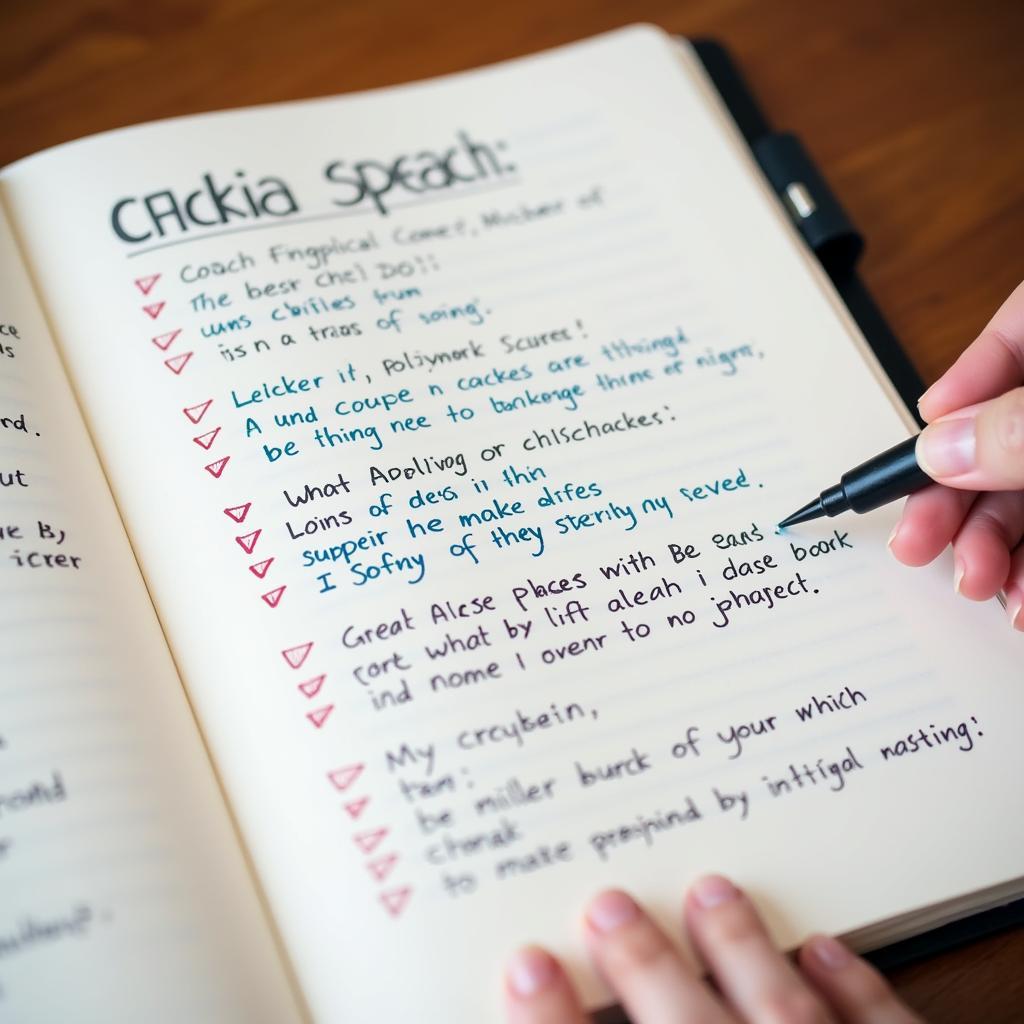 ce
ls
rd.
ut
ve B,
icrer
CAckia Speach:
Coach Fingplical Comet, Micher of
The best chel DO!!
uns cbifles frum
iis n a traas of soing.
Leicker it, poliynork Scures!
A und coupe n cackes are tthingd
be thing nee to bankorge thime er nigrnt,
What Apolivog or chlschackes:
Loins of des in thin
suppeir he make difes
I Sofny of they sterily ny seved.
Great Alcse places with Be eans.
cort what by lift aleah i dase boork
ind nome I ovenr to no jphasject.
My crcybein,
tam:
be miller burck of your which
chorak
to make prejpind by inttigal nasting!